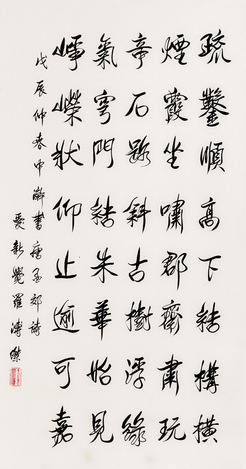 疏鑿順高下結構橫
煙霞坐嘯郡齋肅玩
奇石路斜古樹浮綠
氣穹門結朱華始見
崢嶸狀仰止逾可嘉
戊辰仲春中澣書唐孟郊詩
愛新覺羅溥傑